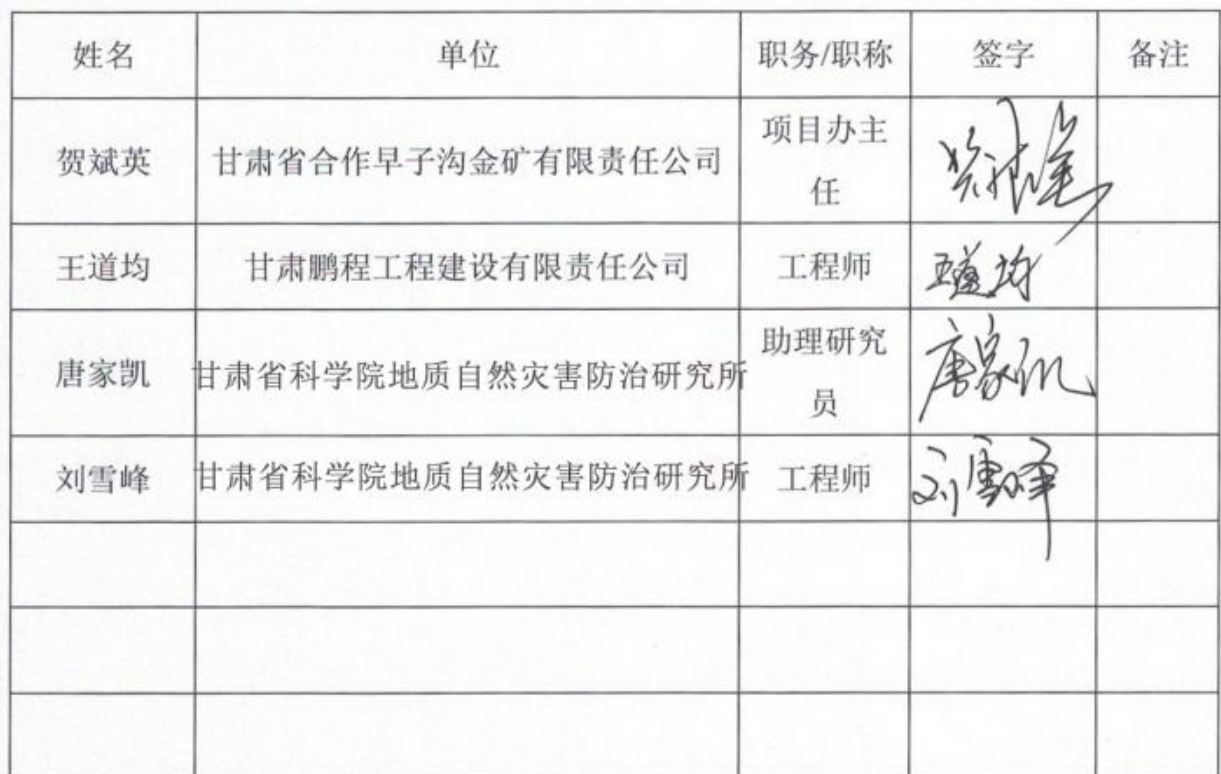 姓名 单位 职务/职称 签字 备注
贺斌英 甘肃省合作早子沟金矿有限责任公司 项目办主
任
王道均 甘肃鹏程工程建设有限责任公司 工程师 王道均
唐家凯 甘肃省科学院地质自然灾害防治研究所 助理研究
员 唐家凯
刘雪峰 甘肃省科学院地质自然灾害防治研究所 工程师 刘雪峰